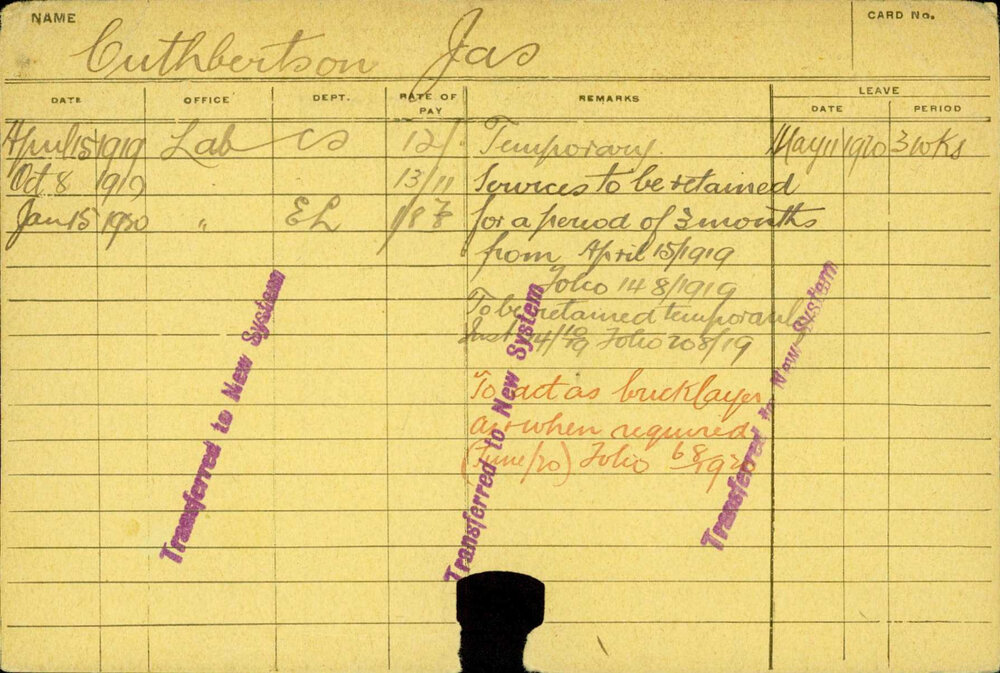 NAME
CARD No.
Cuthbertson Jas
DATE OFFICE DEPT. RATE OF PAY REMARKS LEAVE
DATE PERIOD
April 15 1919 Lab CS 12/ Temporary. May 11 1920 3 wks
Oct 8 1919 13/11 Services to be retained
Jan 15 1920 " EL for a period of 3 months
from April 15/1919
Folio 148/1919
To be retained temporarily
Folio 208/19
To act as bricklayer
as & when required
(June/20) Folio 68/1920
Transferred to New System
Transferred to New System
Transferred to New System